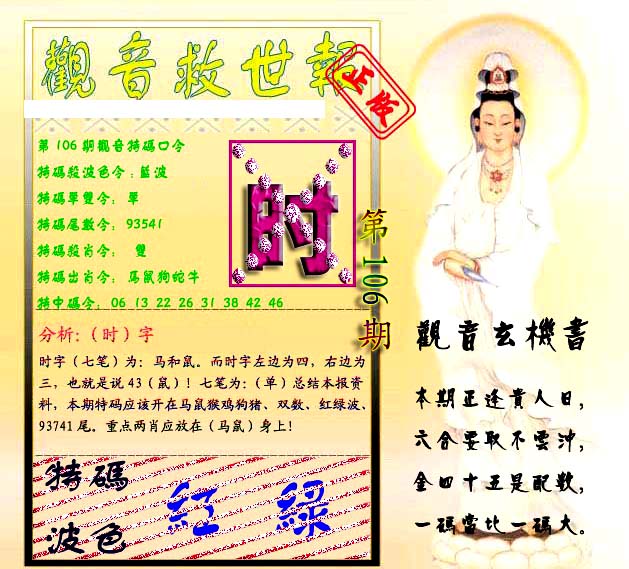 觀音救世報
正版
第106期觀音特碼口令
特碼殺波色令:藍波
特碼單雙令: 單
特碼尾數令: 93541
特碼殺肖令: 雙
特碼出肖令: 馬鼠狗蛇牛
特中碼令: 06 13 22 26 31 38 42 46
时
第106期
分析:(时)字
时字(七笔)为:马和鼠。而时字左边为四,右边为
三,也就是说43(鼠)!七笔为:(单)总结本报资
料,本期特码应该开在马鼠猴鸡狗猪、双数、红绿波、
93741尾。重点两肖应放在(马鼠)身上!
特碼
波色
紅 綠
觀音玄機書
本期正逢貴人日,
六合要取不雲沖,
金四十五是配數,
一碼當比一碼大。